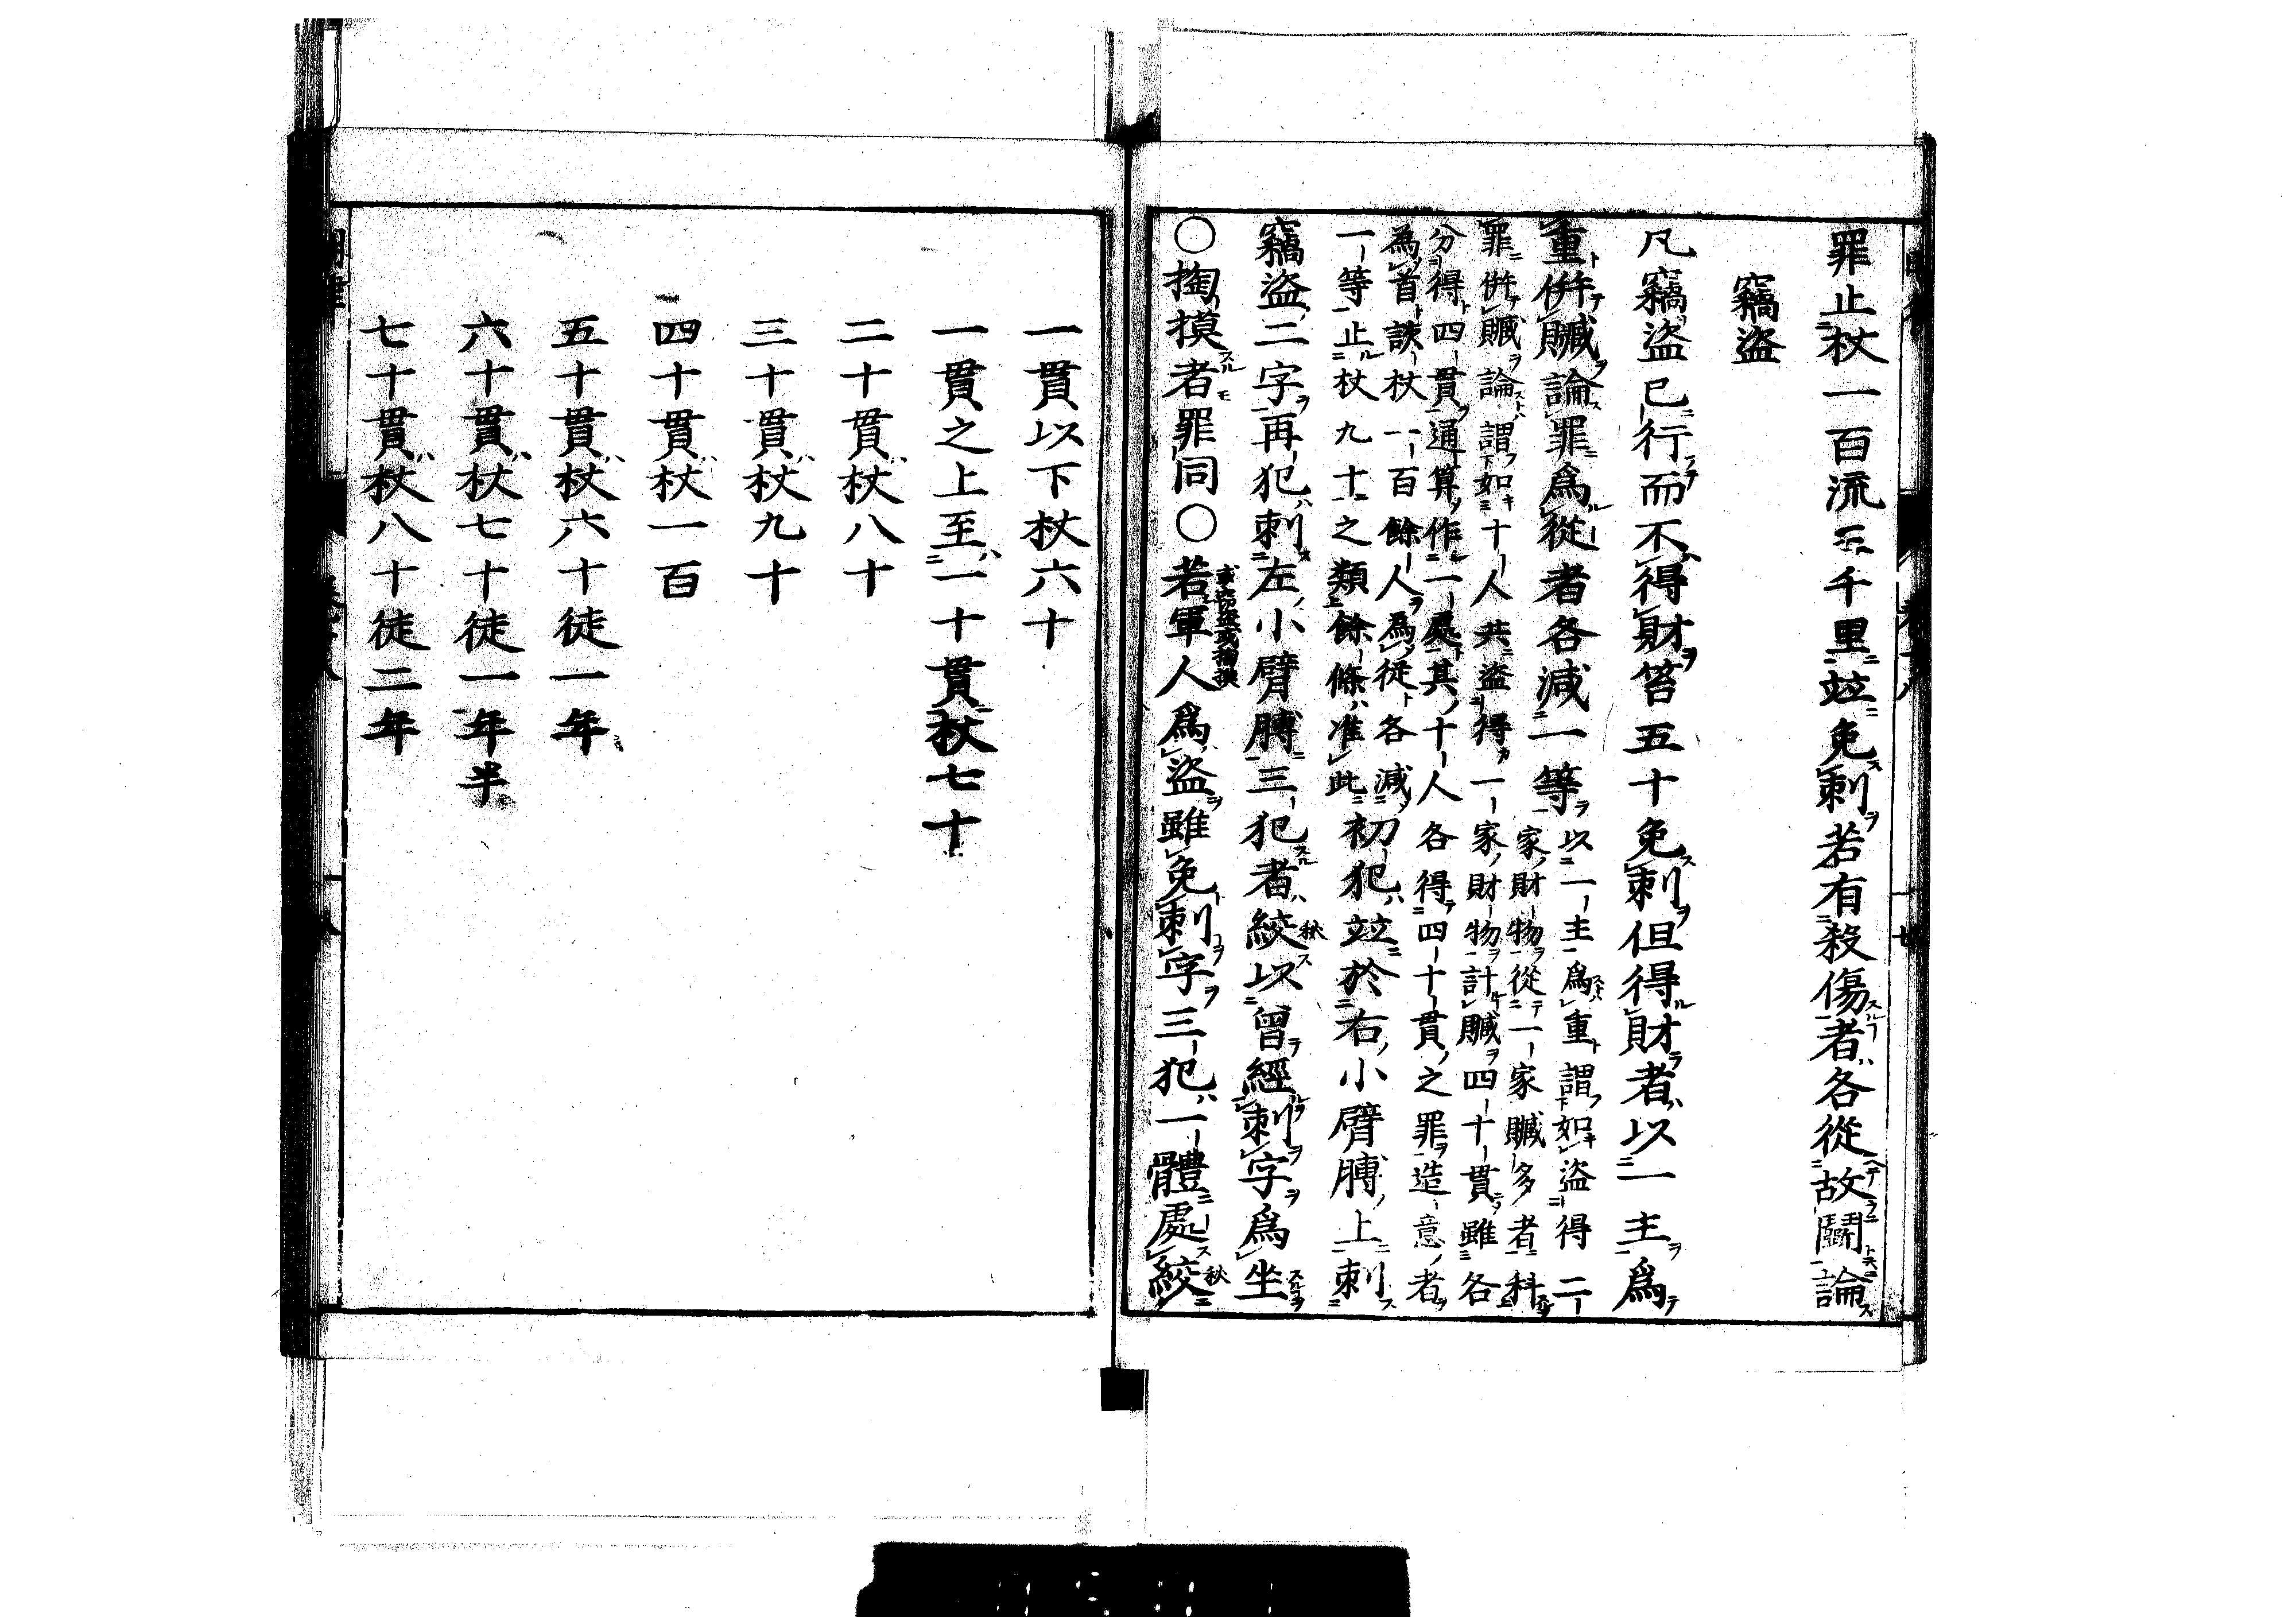 罪止杖一百流三千里竝免刺若有殺傷者各從故鬪論
竊盜
凡竊盜已行而不得財笞五十免刺但得財者以一主爲
重併贓論罪爲從者各減一等以一主爲重謂如盜得二
家財物從一家贓多者科
罪併贓論謂如十人共盜得一家財物計贓四十貫雖各
分得四貫通算作一處其十人各得四十貫之罪造意者
為首該杖一百餘人爲從各減
一等止杖九十之類餘條准此初犯竝於右小臂膊上刺
竊盜二字再犯刺左小臂膊三犯者絞秋以曾經刺字爲坐
○掏摸者罪同○若軍人爲盜雖免刺字三犯一體處絞秋
或竊盜或掏摸
一貫以下杖六十
一貫之上至一十貫杖七十
二十貫杖八十
三十貫杖九十
四十貫杖一百
五十貫杖六十徒一年
六十貫杖七十徒一年半
七十貫杖八十徒二年